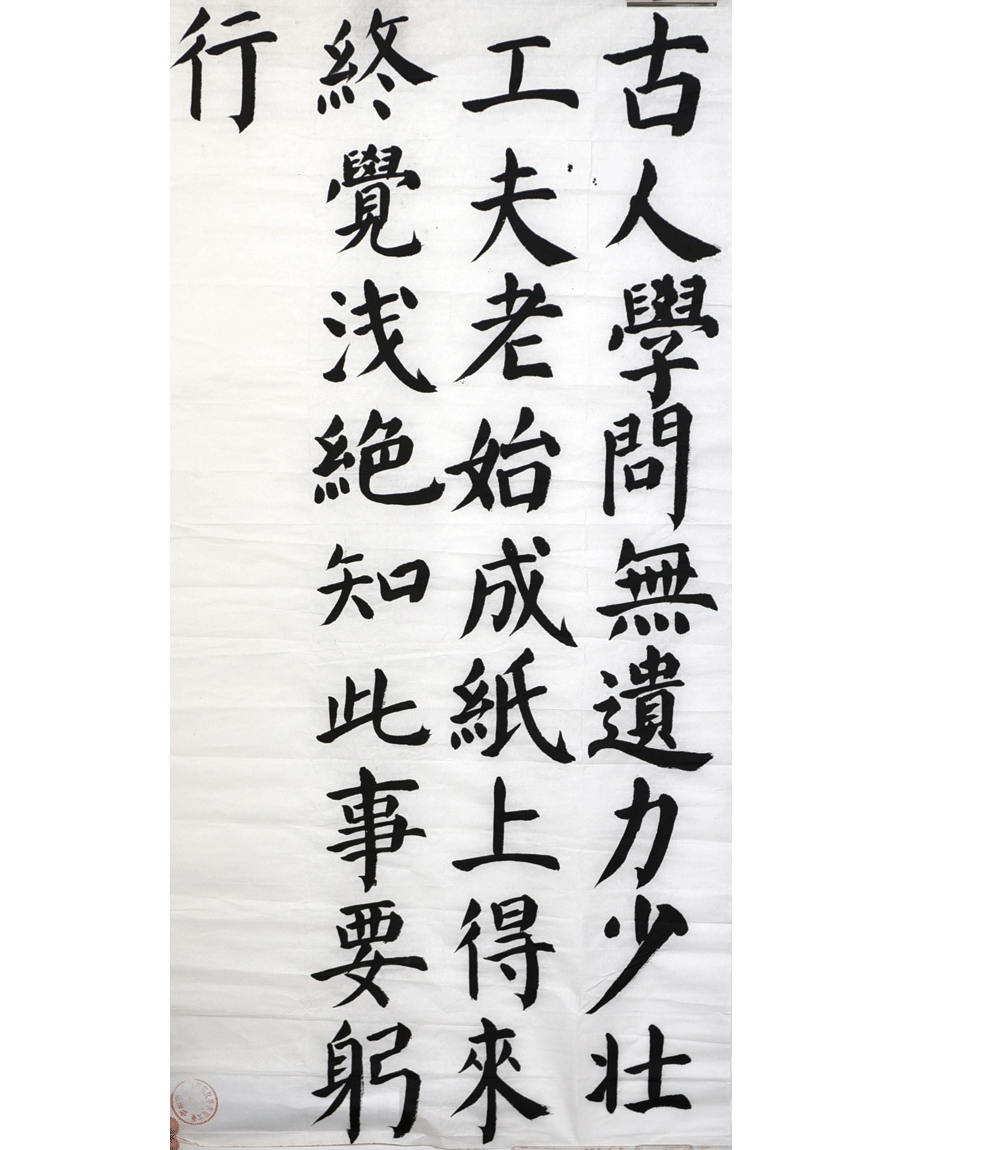 古人學問無遺力少壯
工夫老始成紙上得來
終覺浅絕知此事要躬
行